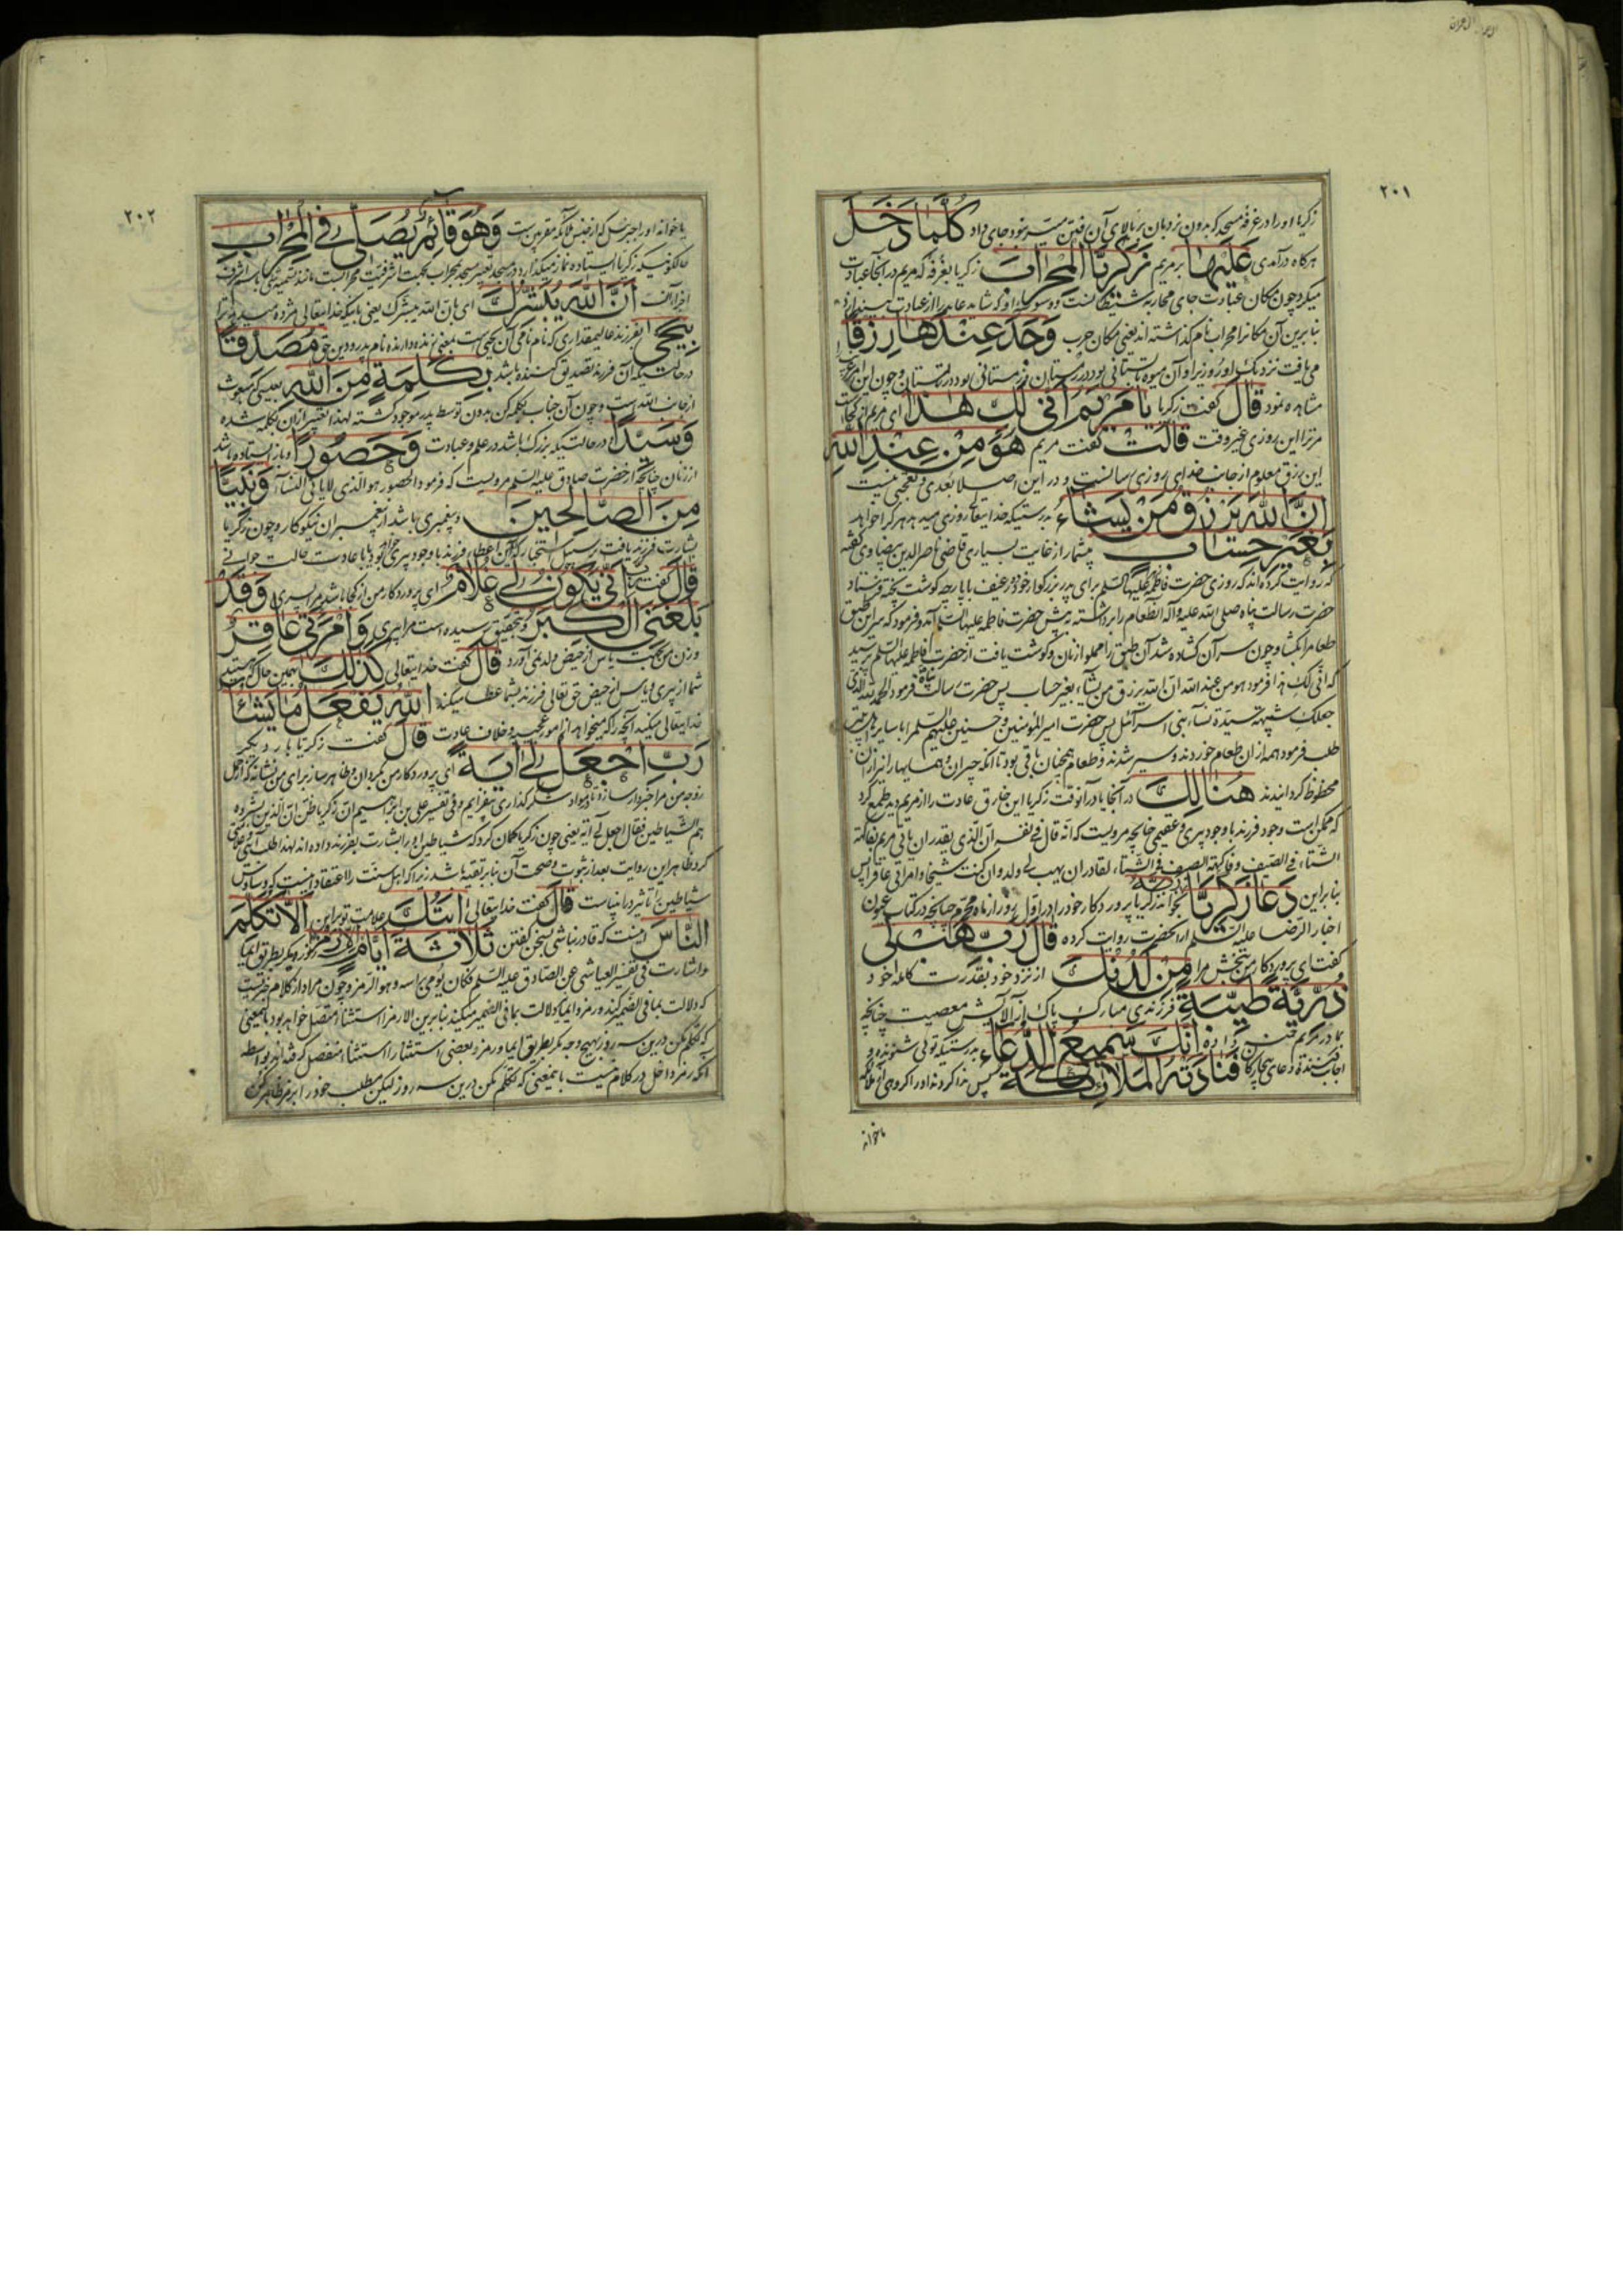 آل عمران
۲۰۱
زکریا او را در غرفه مسجد که بدون نردبان بر بالای آن رفتن میسر نبود جای داد كُلَّمَا دَخَلَ
هرگاه درآمدی عَلَيْهَا بر مریم زَكَرِيَّا الْمِحْرَابَ زکریا بغرفه که مریم در آنجا عبادت
میکرد چون مکان عبادت جای محاربه شیطانست و وسوسه او که شاید عابد را از عبادت
بنابرین آن مکانرا محراب نام گذاشته اند یعنی مکان حرب وَجَدَ عِنْدَهَا رِزْقًا
می یافت نزدیک او روزی را و آن میوه تابستانی بود در زمستان و زمستانی بود در تابستان و چون این امر
مشاهده نمود قَالَ گفت زکریا يَا مَرْيَمُ أَنَّى لَكِ هَذَا ای مریم از کجاست
مر ترا این روزی غیر وقت قَالَتْ گفت مریم هُوَ مِنْ عِنْدِ اللَّهِ
این رزق معلوم از جانب خدای روزی رسانست و در این اصلا بعدی و تعجبی نیست
إِنَّ اللَّهَ يَرْزُقُ مَنْ يَشَاءُ بدرستیکه خدایتعالی روزی میدهد هر کرا خواهد
بِغَيْرِ حِسَابٍ بیشمار از غایت بسیاری قاضی ناصرالدین بیضاوی گفته
که روایت کرده اند که روزی حضرت فاطمه علیها السلم برای پدر بزرگوار خود دو رغیف با پارچه گوشت پخته فرستاد
حضرت رسالت پناه صلی الله علیه و آله آنطعام را برداشته پیش حضرت فاطمه علیها السلم آمد و فرمود که سر این طبق
طعام را بگشا و چون سر آن گشاده شد آن طبق را مملو از نان و گوشت یافت از حضرت فاطمه علیها السلم پرسید
که انی لک هذا فرمود هو من عند الله ان الله یرزق من یشاء بغیر حساب پس حضرت رسالت پناه فرمود الحمد لله الذی
جعلک شبیهة سیدة نساء بنی اسرائیل پس حضرت امیر المؤمنین و حسنین علیهم السلم را با سایر
طلب فرمود همه از ان طعام خوردند و سیر شدند و طعام همچنان باقی بود تا آنکه جیران و همسایها را نیز از ان
محظوظ گردانیدند هُنَالِكَ در آنجا یا در آنوقت زکریا این خارق عادت را از مریم دید طمع کرد
که ممکن است وجود فرزند با وجود پیری و عقیمی چنانچه مرویست که انه قال فی نفسه ان الذی یقدر ان یاتی مریم بفاکهة
الشتاء فی الصیف و فاکهة الصیف فی الشتاء لقادر ان یهب لی ولدا و ان کنت شیخا و امراتی عاقرا پس
بنابراین دَعَا زَكَرِيَّا رَبَّهُ بخواند زکریا پروردگار خود را در اول روز از ماه محرم چنانچه در کتاب عیون
اخبار الرضا علیه السلم از آنحضرت روایت کرده قَالَ رَبِّ هَبْ لِي
گفت ای پروردگار من ببخش مرا مِنْ لَدُنْكَ از نزد خود بقدرت کامله خود
ذُرِّيَّةً طَيِّبَةً فرزندی مبارک پاک از آلایش معصیت چنانچه
بمادر مریم داده إِنَّكَ سَمِيعُ الدُّعَاءِ بدرستیکه توئی شنونده و
اجابت کننده دعای بیچارگان فَنَادَتْهُ الْمَلَائِكَةُ پس ندا کردند او را گروهی از ملائکه
یا خواند
۲۰۲
یا خواند او را جبرئیل که از جنس ملائکه مقربین است وَهُوَ قَائِمٌ يُصَلِّي فِي الْمِحْرَابِ
حالکونیکه زکریا ایستاده نماز میگذارد در مسجد تعبیر مسجد بمحراب بجهت اشرفیت محرابست مانند تسمیه شئ باسم اشرف
اجزاء آن أَنَّ اللَّهَ يُبَشِّرُكَ ای بان الله یبشرک یعنی باینکه خدایتعالی مژده میدهد ترا
بِيَحْيَى بفرزند عالیمقداری که نام نامی آن یحیی است بمعنی زنده دارنده نام پدر و دین حق مُصَدِّقًا
در حالتیکه آن فرزند تصدیق کننده باشد بِكَلِمَةٍ مِنَ اللَّهِ بعیسی که مبعوث
از جانب الله است و چون آن جناب بکلمه کن بدون توسط پدر موجود گشته لهذا تعبیر از ان بکلمه شده
وَسَيِّدًا در حالتیکه بزرگ باشد در علم و عبادت وَحَصُورًا و باز ایستاده باشد
از زنان چنانچه از حضرت صادق علیه السلم مرویست که فرمود الحصور هو الذی لا یاتی النساء وَنَبِيًّا
مِنَ الصَّالِحِينَ و پیغمبری باشد از پیغمبران نیکوکار و چون زکریا
بشارت فرزند یافت بر سبیل استخبار که آیا اعطاء فرزند با وجود پیری خواهد بود یا با عادت حالت جوانی
قَالَ گفت رَبِّ أَنَّى يَكُونُ لِي غُلَامٌ ای پروردگار من از کجا باشد مرا پسری وَقَدْ
بَلَغَنِيَ الْكِبَرُ و بتحقیق رسیده است مرا پیری وَامْرَأَتِي عَاقِرٌ
و زن من بجهت یاس از حیض ولد نمی آورد قَالَ گفت خدایتعالی كَذَلِكَ بهمین حال که هستید
شما از پیری و یاس از حیض حق تعالی فرزند بشما عطا میکند اللَّهُ يَفْعَلُ مَا يَشَاءُ
خدایتعالی میکند آنچه را که میخواهد از امور عجیبه و خلاف عادت قَالَ گفت زکریا بار دیگر
رَبِّ اجْعَلْ لِي آيَةً ای پروردگار من بگردان و ظاهر ساز برای من نشانه که از حمل
زوجه من مرا خبردار سازد تا بمواد شکرگذاری بیفزایم و فی تفسیر علی بن ابراهیم ان زکریا ظن ان الذین بشروه
هم الشیاطین فقال اجعل لی آیة یعنی چون زکریا گمان کرد که شیاطین او را بشارت بفرزند داده اند لهذا طلب آیتی
کرد ظاهر این روایت بعد از ثبوت و صحت آن بنابر تقیه باشد زیرا که اهل سنت را اعتقاد اینست که وساوس
شیاطین را تاثیر در انبیاست قَالَ گفت خدایتعالی آيَتُكَ علامت تو براین أَلَّا تُكَلِّمَ
النَّاسَ اینست که قادر نباشی بسخن گفتن ثَلَاثَةَ أَيَّامٍ إِلَّا رَمْزًا سه روز مگر بطریق ایما
و اشارت فی تفسیر العیاشی عن الصادق علیه السلم فکان یومی براسه و هو الرمز و چون مراد از کلام
که دلالت بما فی الضمیر کند و رمز و ایما دلالت بما فی الضمیر میکند بنابرین الا رمزا استثناء متصل خواهد بود باینمعنی
که تکلم مکن درین سه روز بهیچ وجه مگر بطریق ایما و رمز و بعضی استثنا را استثناء منفصل گرفته اند بواسطه
آنکه رمز داخل در کلام نیست باینمعنی که تکلم مکن درین سه روز لیکن مطلب خود را برمز ظاهر کن